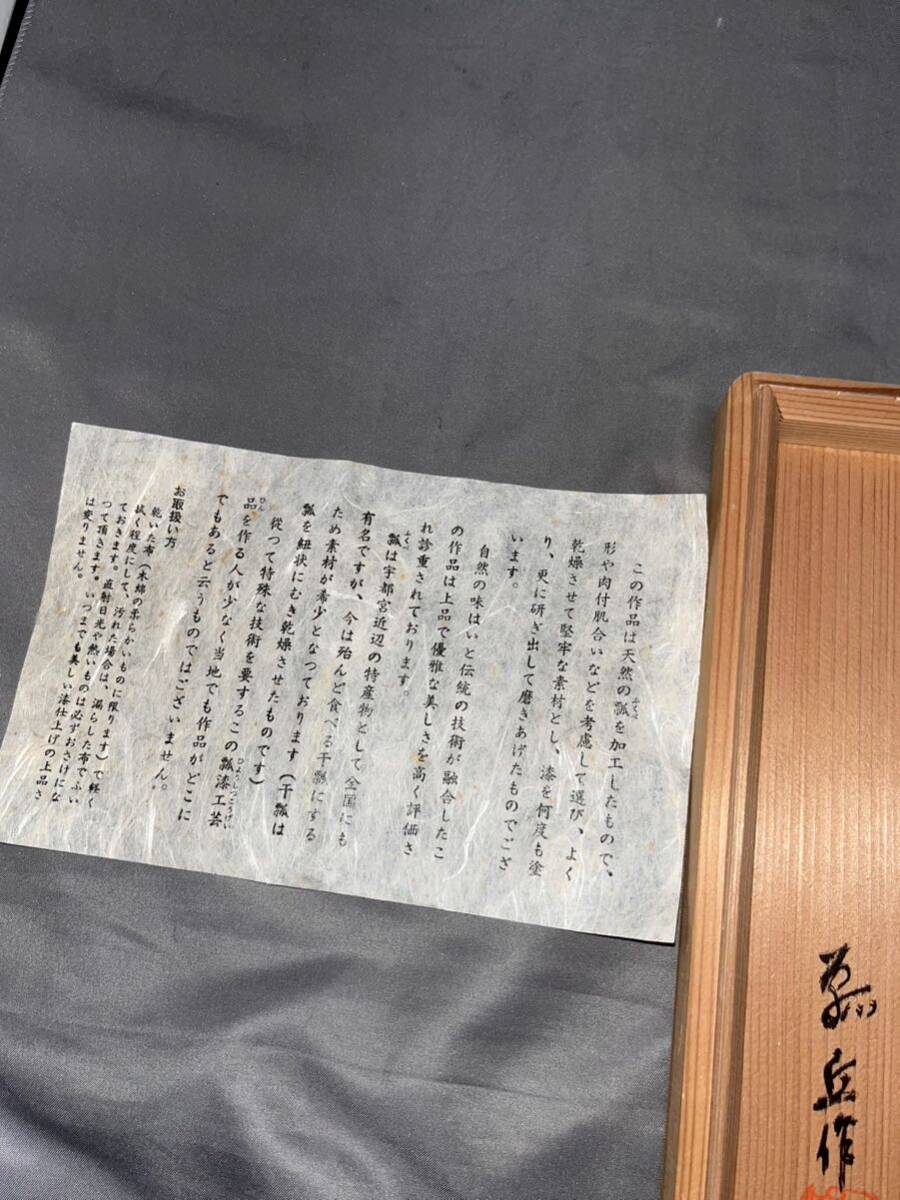 この作品は天然の瓢を加工したもので、
ふくべ
形や肉付肌合いなどを考慮して選び、よく
乾燥させて堅牢な素材とし、漆を何度も塗
り、更に研ぎ出して磨きあげたものでござ
います。
自然の味はいと伝統の技術が融合したこ
の作品は上品で優雅な美しさを高く評価さ
れ診重されております。
瓢は宇都宮近辺の特産物として全国にも
ふくべ
有名ですが、今は殆んど食べる干瓢にする
ため素材が希少となつております(干瓢は
瓢を紐状にむき乾燥させたものです)
従つて特殊な技術を要するこの瓢漆工芸
ひょうしつこうげい
品を作る人が少なく当地でも作品がどこに
ひん
でもあると云うものではございません。
お取扱い方
乾いた布(木綿の柔らかいものに限ります)で軽く
拭く程度にして、汚れた場合は、濡らした布でふい
ておきます。直射日光や熱いものは必ずおさけにな
つて頂きます。いつまでも美しい漆仕上げの上品さ
は変りません。
丘作